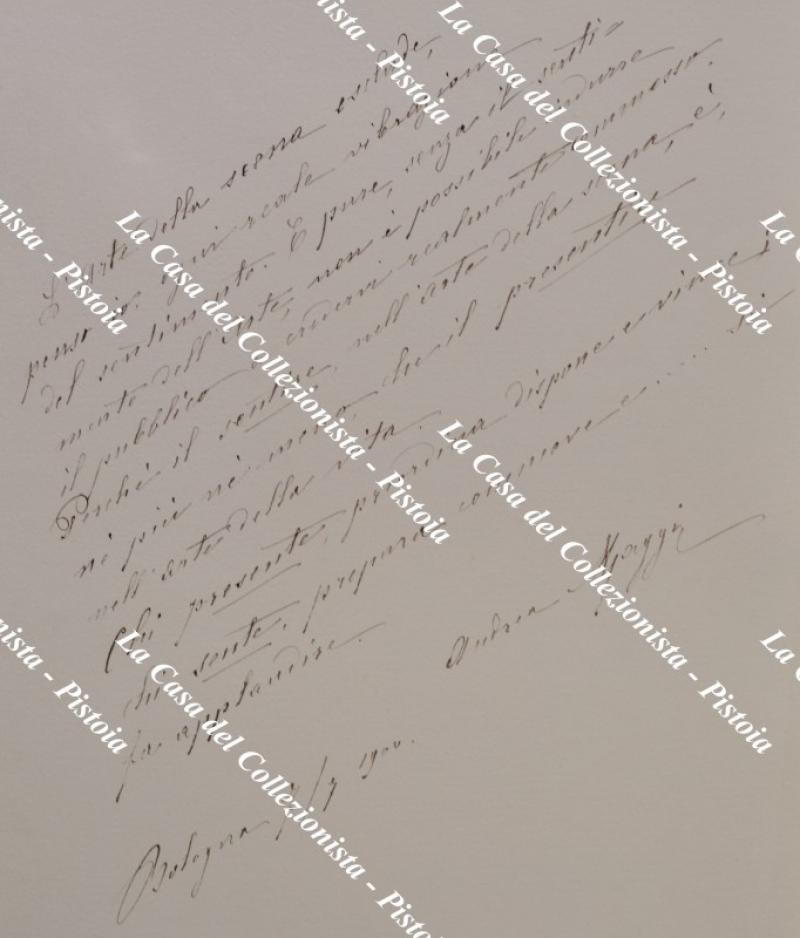 L'arte della scena esclude,
penso io, ogni reale vibrazione
del sentimento. E pure, senza il senti-
mento dell'arte, non è possibile indurre
il pubblico a credervi realmente commosso.
Perchè il sentire, nell'arte della scena, è,
nè più nè meno, che il presentire
nell'arte della vita.
Chi presente, preordina dispone e vince;
chi sente, prepara commuove e..... si
fa applaudire.
Andrea Maggi
Bologna 1900.
La Casa del Collezionista - Pistoia
La Casa del Collezionista - Pistoia
La Casa del Collezionista - Pistoia
La Casa del Collezionista - Pistoia